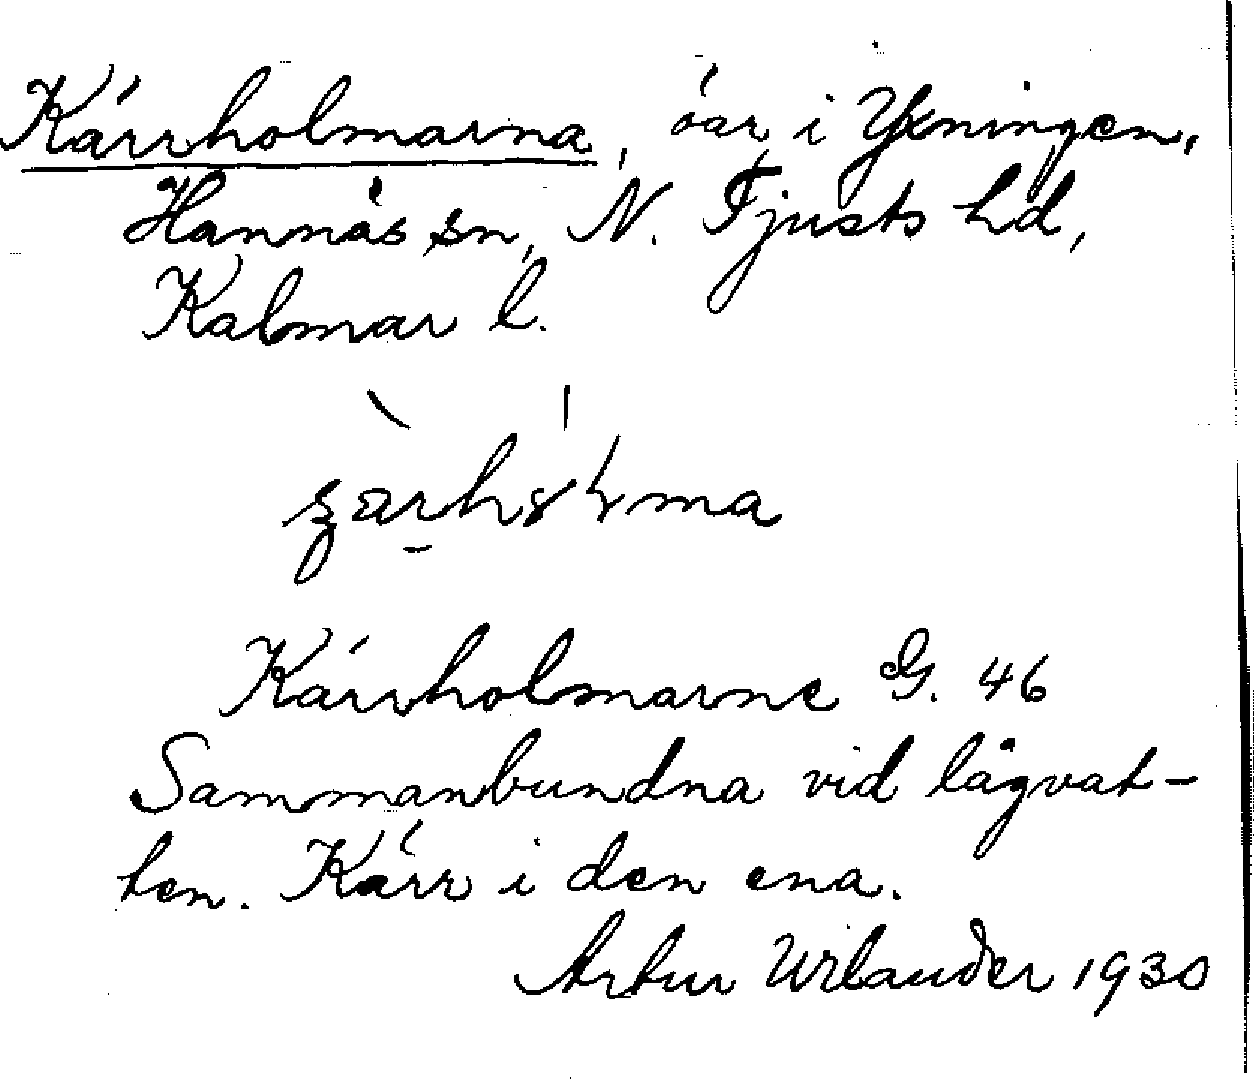 Kärrholmarna, öar i Yxningen,
Hannäs sn, N. Tjusts hd,
Kalmar l.
Kärrholmarne G. 46
Sammanbundna vid lågvat-
ten. Kärr i den ena.
Artur Urlander 1930